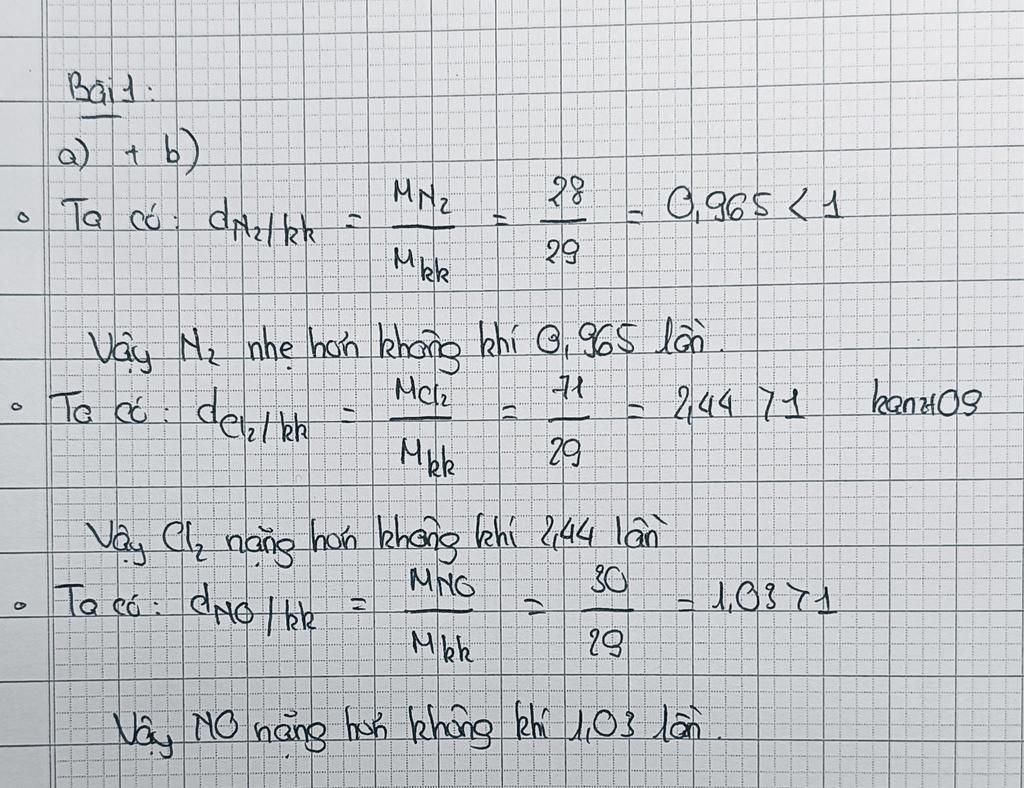 Bài 1:
a) + b)
Ta có: dN₂/kk = MN₂/Mkk = 28/29 = 0,965 < 1
Vậy N₂ nhẹ hơn không khí 0,965 lần.
Ta có: dCl₂/kk = MCl₂/Mkk = 71/29 = 2,44 > 1
Vậy Cl₂ nặng hơn không khí 2,44 lần
Ta có: dNO/kk = MNO/Mkk = 30/29 = 1,03 > 1
Vậy NO nặng hơn không khí 1,03 lần.